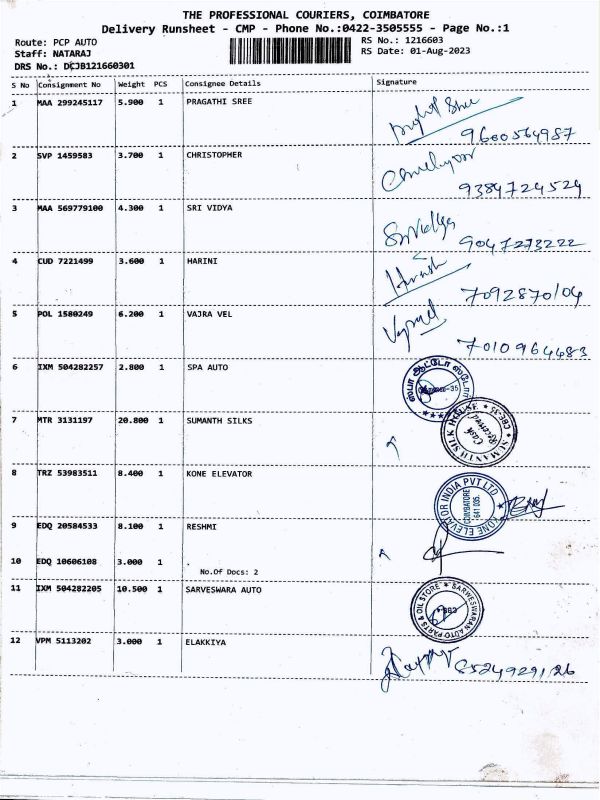 THE PROFESSIONAL COURIERS, COIMBATORE
Delivery Runsheet - CMP - Phone No.:0422-3505555 - Page No.:1
Route: PCP AUTO
RS No.: 1216603
Staff: NATARAJ
RS Date: 01-Aug-2023
DRS No.: DCJB121660301
S No Consignment No Weight PCS Consignee Details Signature
1 MAA 299245117 5.900 1 PRAGATHI SREE
9600564987
2 SVP 1459583 3.700 1 CHRISTOPHER
9384724529
3 MAA 569779100 4.300 1 SRI VIDYA
SriVidya
9047273222
4 CUD 7221499 3.600 1 HARINI
7092870104
5 POL 1580249 6.200 1 VAJRA VEL
7010964483
6 IXM 504282257 2.800 1 SPA AUTO
ஸ்பா ஆட்டோ ஸ்டோர்
7 MTR 3131197 20.800 1 SUMANTH SILKS
SUMANTH SILK HOUSE
CBE-35
Cash
Received
8 TRZ 53983511 8.400 1 KONE ELEVATOR
KONE ELEVATOR INDIA PVT LTD
COIMBATORE
641 005.
9 EDQ 20584533 8.100 1 RESHMI
10 EDQ 10606108 3.000 1
No.Of Docs: 2
11 IXM 504282205 10.500 1 SARVESWARA AUTO
SARWESWARAN AUTO PARTS & OIL STORE
12 VPM 5113202 3.000 1 ELAKKIYA